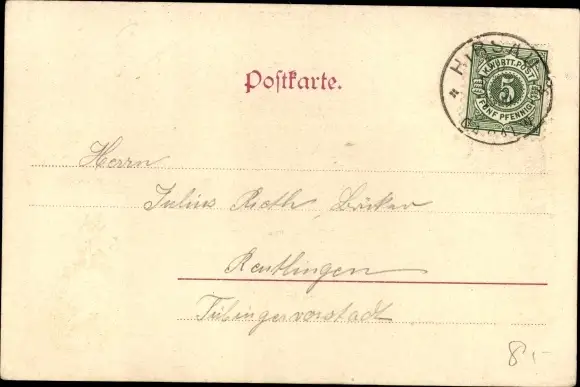 Postkarte.
HIRSAU
K.WÜRTT.POST
5
FÜNF PFENNIG
Herrn
Julius Roth, Bäcker
Reutlingen
Tübingervorstadt
8.-